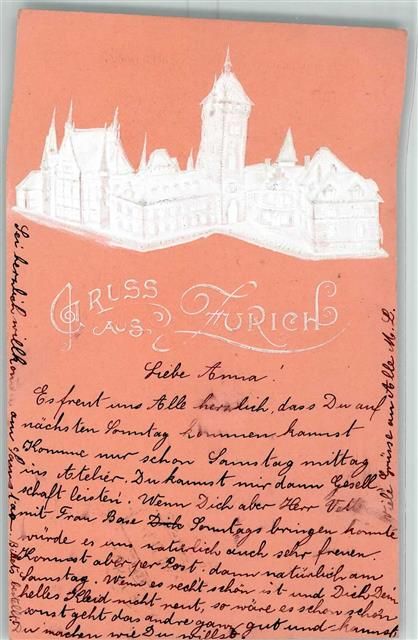 GRUSS
AUS
ZÜRICH
Liebe Anna!
Es freut uns Alle herzlich, dass Du auf
nächsten Sonntag kommen kannst
Komme nur schon Samstag mittag
ins Atelier. Du kannst mir dann Gesell
schaft leisten! Wenn Dich aber Herr
mit Frau Base Dich Sonntags bringen könnte
würde es uns natürlich auch sehr freuen.
Kommst aber per Post, dann natürlich am
Samstag. Wenn es recht schön ist und Dich Dein
helles Kleid nicht reut, so wäre es schon schön
sonst geht das andre ganz gut und kannst
Du machen wie Du willst
Sei herzlich willkommen am Samstag
Viele Grüsse an Alle M. L.